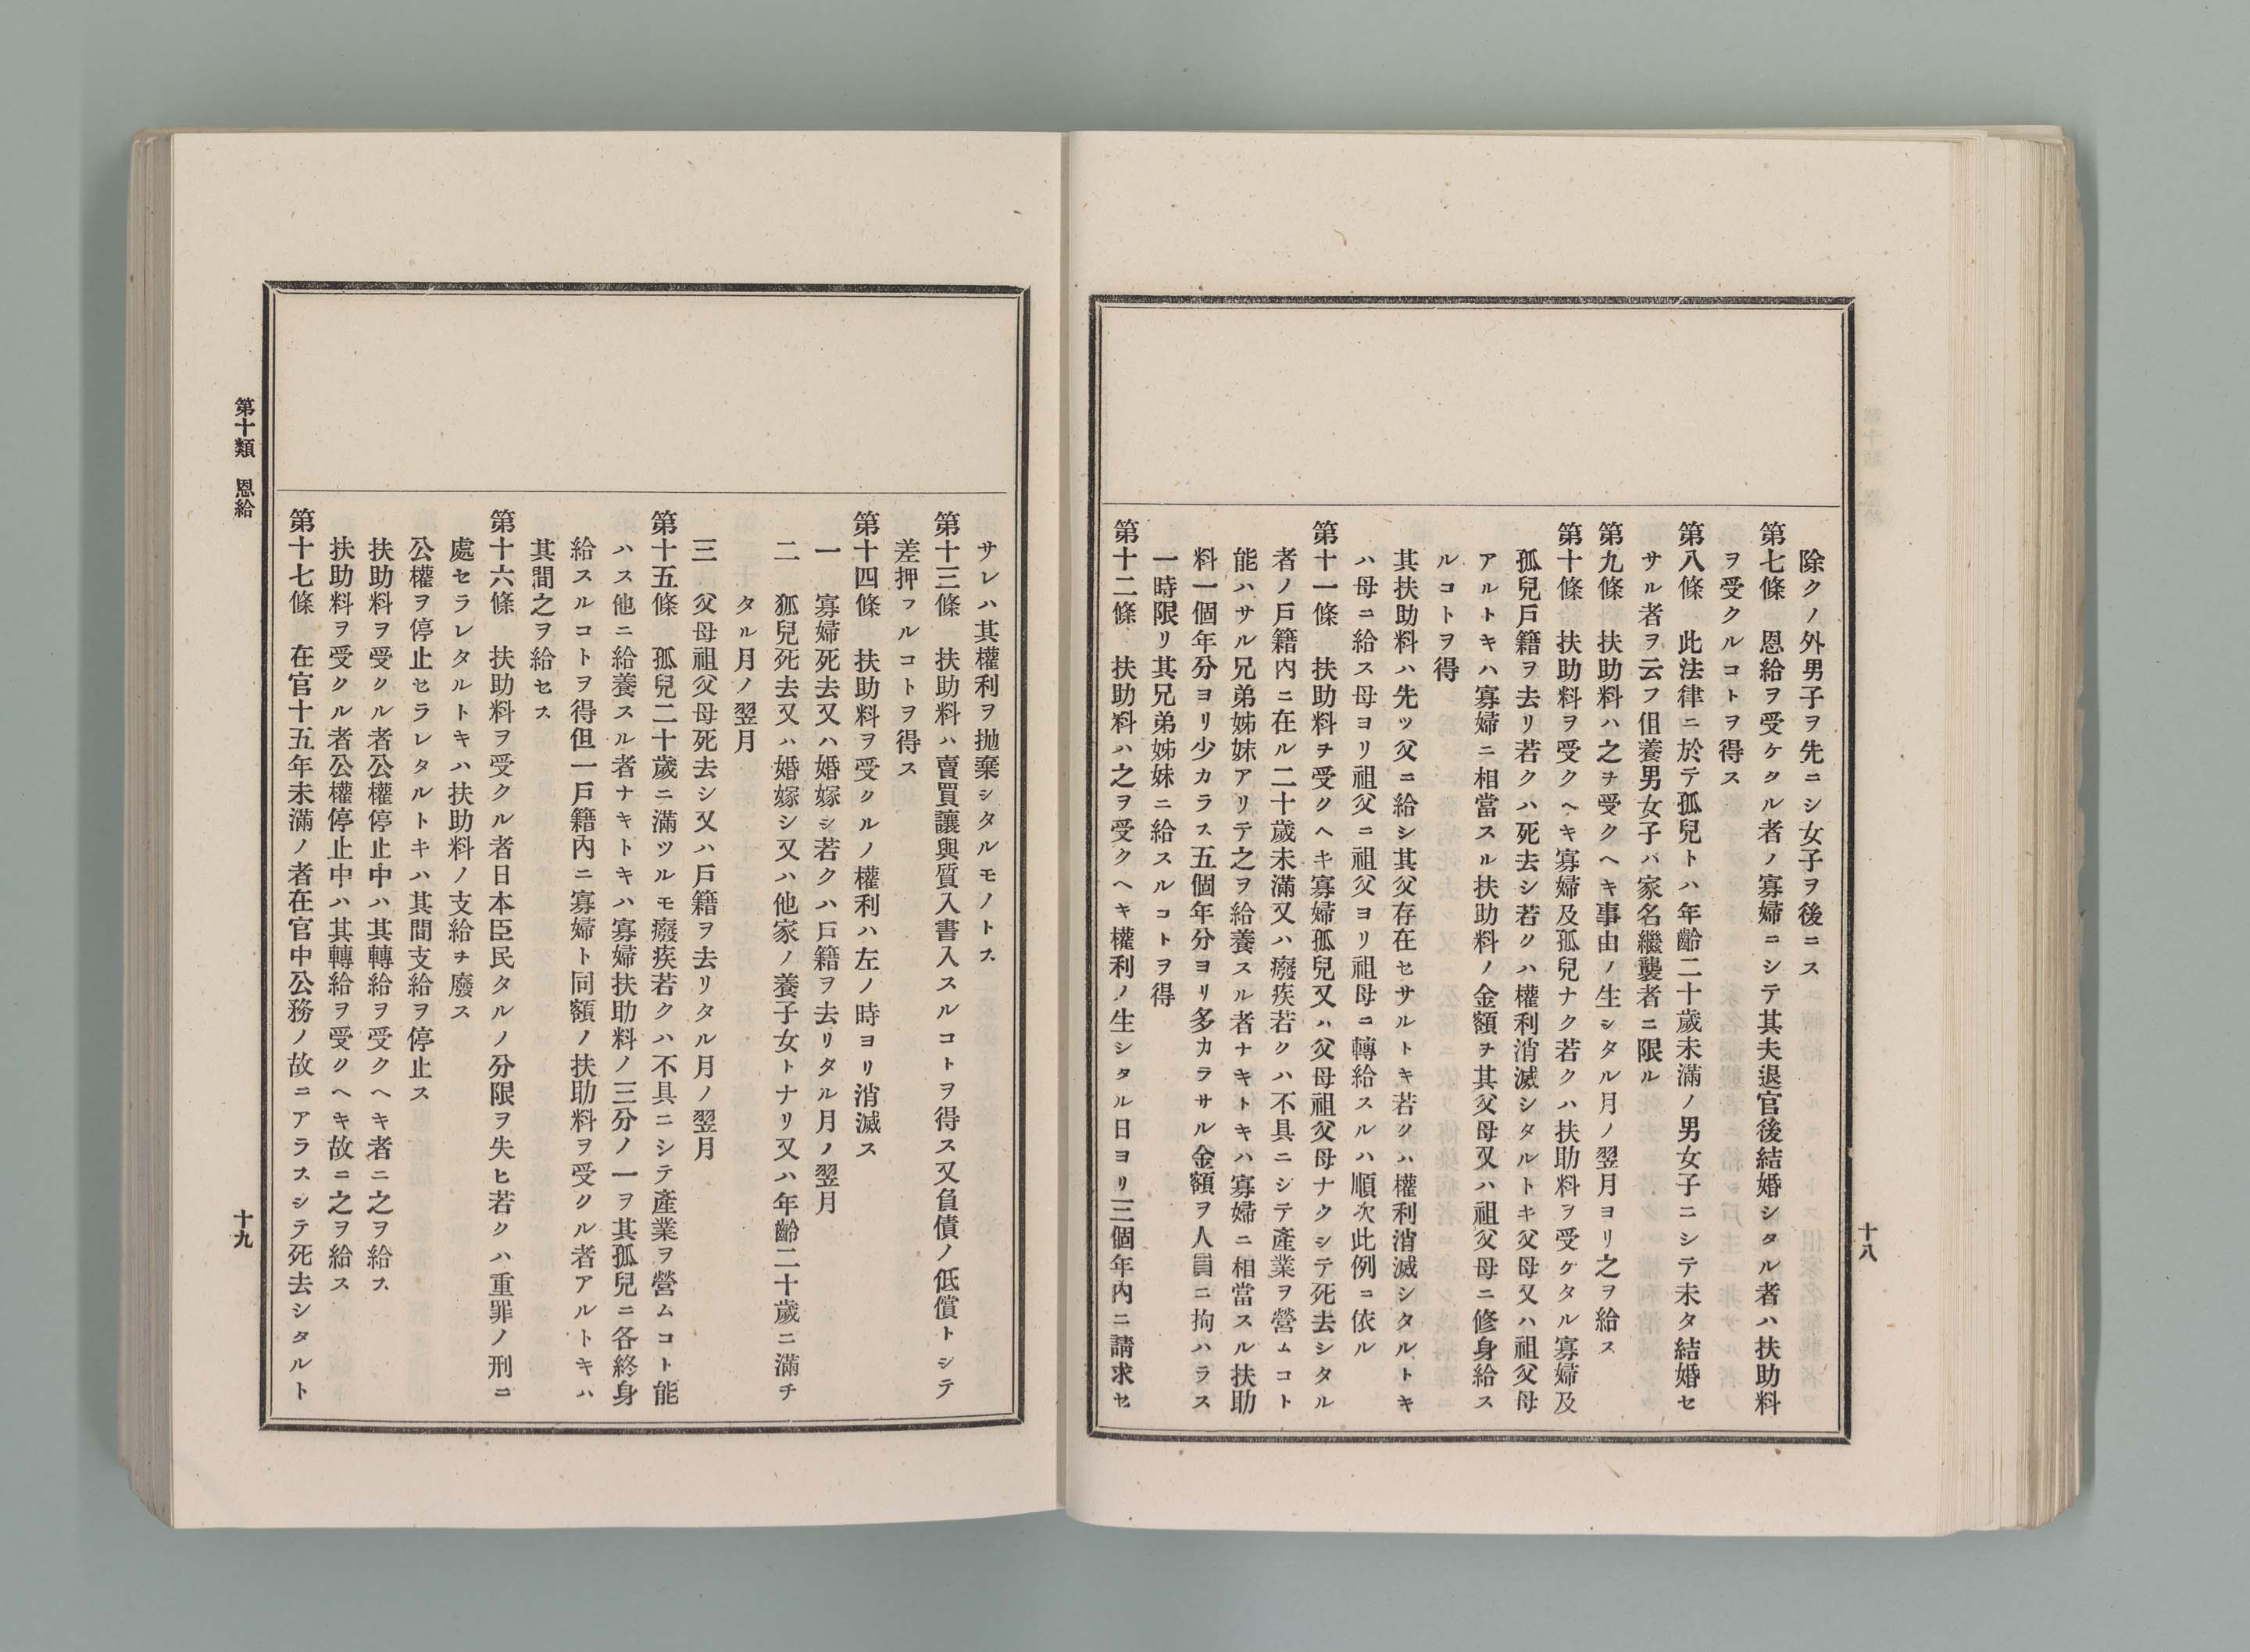 十八
除クノ外男子ヲ先ニシ女子ヲ後ニス
第七條　恩給ヲ受ケタル者ノ寡婦ニシテ其夫退官後結婚シタル者ハ扶助料
ヲ受クルコトヲ得ス
第八條　此法律ニ於テ孤兒トハ年齡二十歲未滿ノ男女子ニシテ未タ結婚セ
サル者ヲ云フ但養男女子ハ家名繼襲者ニ限ル
第九條　扶助料ハ之ヲ受クヘキ事由ノ生シタル月ノ翌月ヨリ之ヲ給ス
第十條　扶助料ヲ受クヘキ寡婦及孤兒ナク若クハ扶助料ヲ受ケタル寡婦及
孤兒戶籍ヲ去リ若クハ死去シ若クハ權利消滅シタルトキ父母又ハ祖父母
アルトキハ寡婦ニ相當スル扶助料ノ金額ヲ其父母又ハ祖父母ニ修身給ス
ルコトヲ得
其扶助料ハ先ツ父ニ給シ其父存在セサルトキ若クハ權利消滅シタルトキ
ハ母ニ給ス母ヨリ祖父ニ祖父ヨリ祖母ニ轉給スルハ順次此例ニ依ル
第十一條　扶助料ヲ受クヘキ寡婦孤兒又ハ父母祖父母ナクシテ死去シタル
者ノ戶籍內ニ在ル二十歲未滿又ハ癈疾若クハ不具ニシテ產業ヲ營ムコト
能ハサル兄弟姊妹アリテ之ヲ給養スル者ナキトキハ寡婦ニ相當スル扶助
料一個年分ヨリ少カラス五個年分ヨリ多カラサル金額ヲ人員ニ拘ハラス
一時限リ其兄弟姊妹ニ給スルコトヲ得
第十二條　扶助料ハ之ヲ受クヘキ權利ノ生シタル日ヨリ三個年內ニ請求セ
サレハ其權利ヲ抛棄シタルモノトス
第十三條　扶助料ハ賣買讓與質入書入スルコトヲ得ス又負債ノ低償トシテ
差押フルコトヲ得ス
第十四條　扶助料ヲ受クルノ權利ハ左ノ時ヨリ消滅ス
一　寡婦死去又ハ婚嫁シ若クハ戶籍ヲ去リタル月ノ翌月
二　狐兒死去又ハ婚嫁シ又ハ他家ノ養子女トナリ又ハ年齡二十歲ニ滿チ
タル月ノ翌月
三　父母祖父母死去シ又ハ戶籍ヲ去リタル月ノ翌月
第十五條　孤兒二十歲ニ滿ツルモ癈疾若クハ不具ニシテ產業ヲ營ムコト能
ハス他ニ給養スル者ナキトキハ寡婦扶助料ノ三分ノ一ヲ其孤兒ニ各終身
給スルコトヲ得但一戶籍內ニ寡婦ト同額ノ扶助料ヲ受クル者アルトキハ
其間之ヲ給セス
第十六條　扶助料ヲ受クル者日本臣民タルノ分限ヲ失ヒ若クハ重罪ノ刑ニ
處セラレタルトキハ扶助料ノ支給ヲ廢ス
公權ヲ停止セラレタルトキハ其間支給ヲ停止ス
扶助料ヲ受クル者公權停止中ハ其轉給ヲ受クヘキ者ニ之ヲ給ス
扶助料ヲ受クル者公權停止中ハ其轉給ヲ受クヘキ故ニ之ヲ給ス
第十七條　在官十五年未滿ノ者在官中公務ノ故ニアラスシテ死去シタルト
第十類　恩給
十九